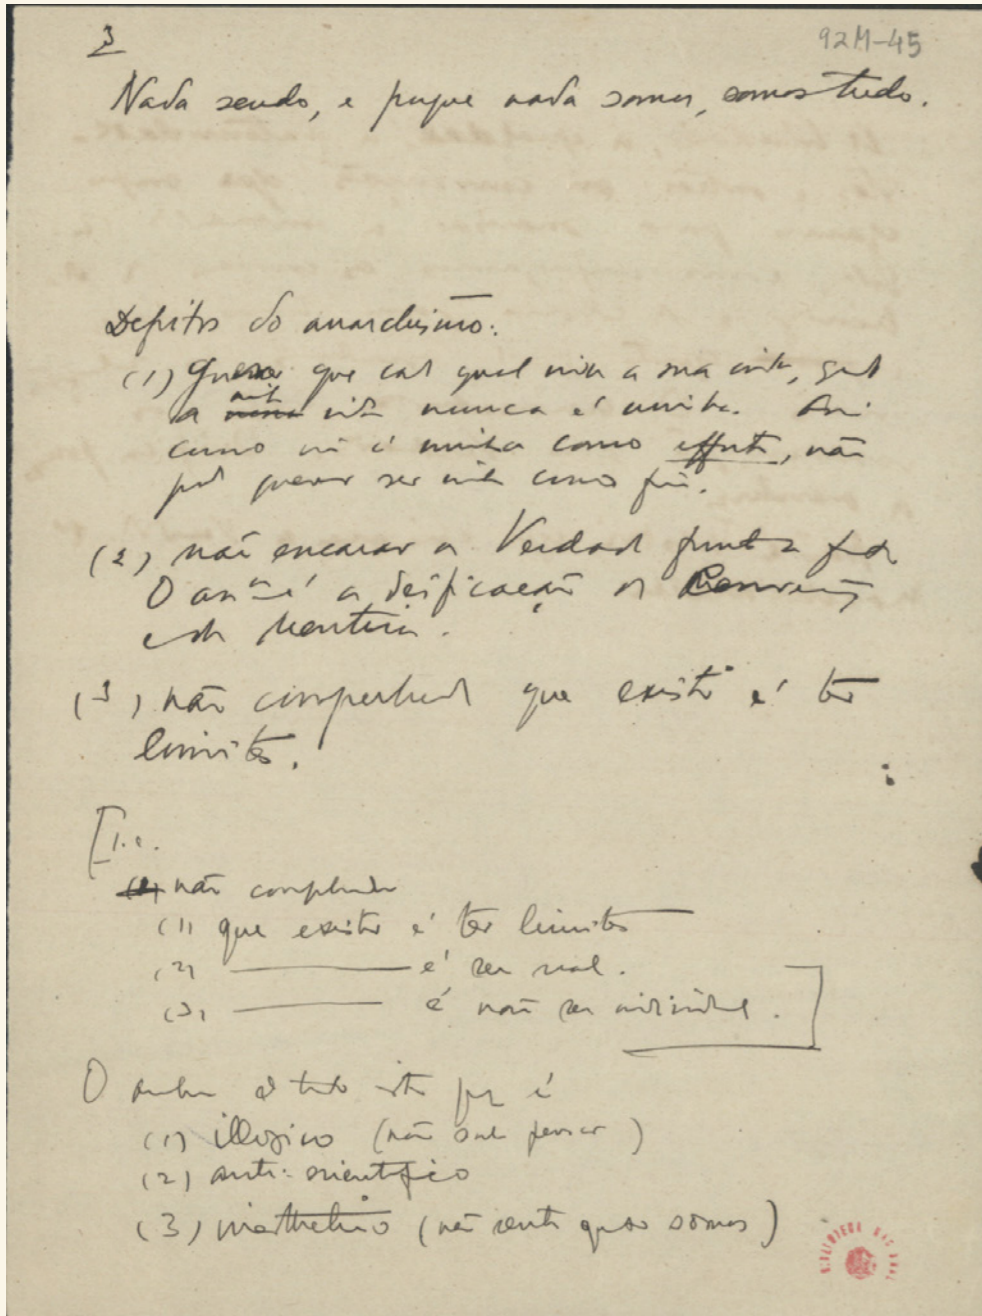 3
92M-45
Nada sendo, e porque nada somos, somos tudo.
Defeitos do anarchismo:
(1) Querer que cada qual viva a sua vida, quando
a vida nunca é minha. Assi
como não é minha como, não
pode querer ser minha como fim.
(2) não encarar a Verdade frente a frente
O an é a deificação da
e da Mentira.
(3) não comprehende que existir é ter
limites.
[I.e.
não comprehende
(1) que existir é ter limites
(2) ——— é ser real.
(3) ——— é não ser individual.]
O de tudo isto é
(1) illogico (não sabe pensar)
(2) anti-scientifico
(3) (não sente que somos)